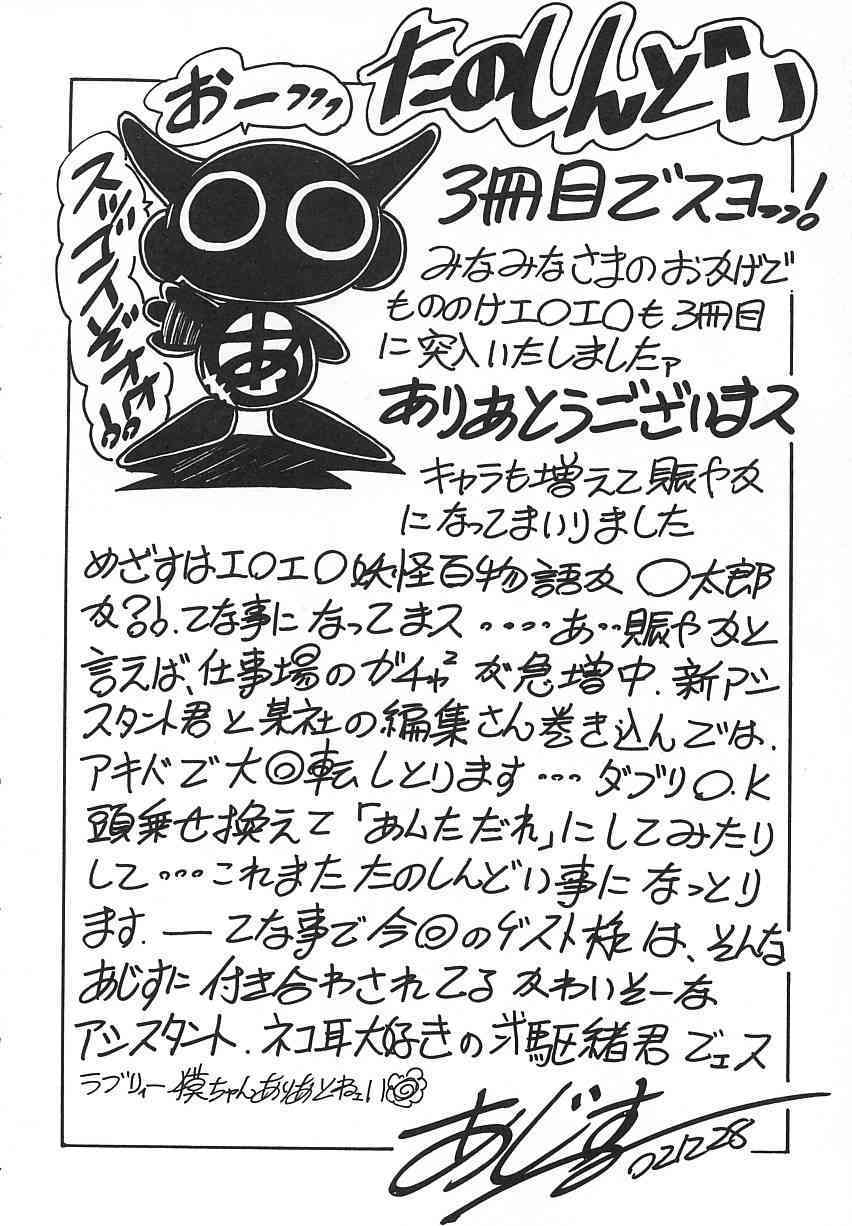 たのしんどい
おーっっっ
スッゴイぞオオ!!
3冊目でスヨっっ!
みなみなさまのおかげで
もののけエ〇エ〇も3冊目
に突入いたしましたァ
ありあとうございまス
キャラも増えて賑やか
になってまいりました
めざすはエ〇エ〇妖怪百物語か〇太郎
か?!.てな事になってまス・・・・あ・・賑やかと
言えば、仕事場のガチャ²が急増中.新アシ
スタント君と某社の編集さん巻き込んでは.
アキバで大◎転しとります・・・ダブりO.K
頭乗せ換えて「あんただれ」にしてみたり
して・・・これまたたのしんどい事になっとり
ます.―てな事で今◎のゲスト様は、そんな
あじすに付き合わされてるかわいそーな
アシスタント.ネコ耳大好きの 駆緒君でェス
ラブリィー ちゃんありあとねェい
あじす
02.12.28
あ